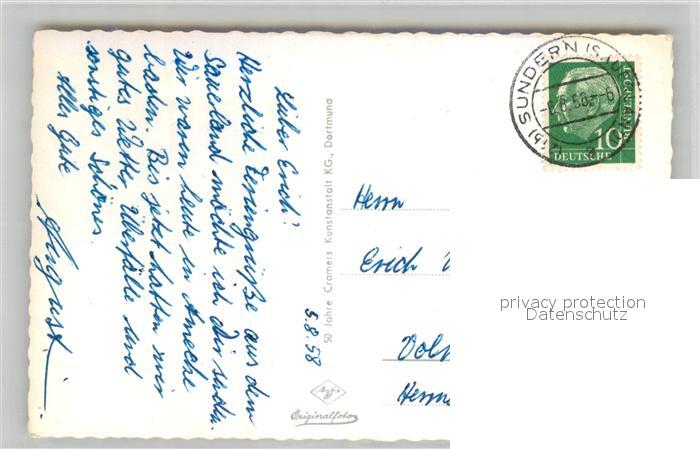 Lieber Erich!
Herzliche Feriengrüße aus dem
Sauerland möchte ich Dir senden.
Wir waren heute in Amecke
baden. Bis jetzt hatten wir
gutes Wetter, Überfälle und
sonstiges Schönes.
Alles Gute
August
5.8.58
50 Jahre Cramers Kunstanstalt KG., Dortmund
Agfa
Originalfoto
SUNDERN (S
10
DEUTSCHE
Herrn
Erich
privacy protection
Datenschutz